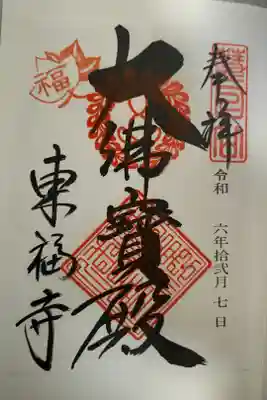 奉拝
令和 六年拾弐月七日
大佛寳殿
東福寺
福